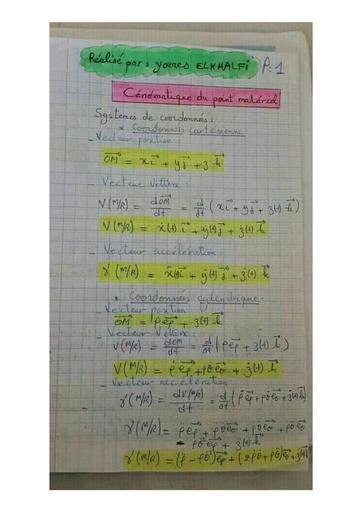 Réalisé par : younes ELKHALFI P.1
Cénématique du point matériel
Systèmes de coordonnés :
* Coordonnés Cartésienne
- Vecteur position :
OM = x i + y j + z k
- Vecteur Vitesse :
V(M/R) = dOM/dt = d/dt (x i + y j + z(t) k)
V(M/R) = ẋ(t) i + ẏ(t) j + ż(t) k
- Vecteur accélération
γ(M/R) = ẍ(t) i + ÿ(t) j + z̈(t) k
* Coordonnés cylindrique
- Vecteur position
OM = ρ eρ + z(t) k
- Vecteur Vitesse
V(M/R) = dOM/dt = d/dt (ρ eρ + z(t) k)
V(M/R) = ρ̇ eρ + ρθ̇ eθ + ż(t) k
- Vecteur accélération
γ(M/R) = dV(M/R)/dt = d/dt (ρ̇ eρ + ρθ̇ eθ + ż(t) k)
γ(M/R) = ρ̈ eρ + ρ̇θ̇ eθ + ρ̇θ̇ eθ + ρθ̈ eθ
- ρθ̇² eρ + z̈(t) k
γ(M/R) = (ρ̈ - ρθ̇²) eρ + (2ρ̇θ̇ + ρθ̈) eθ + z̈(t) k